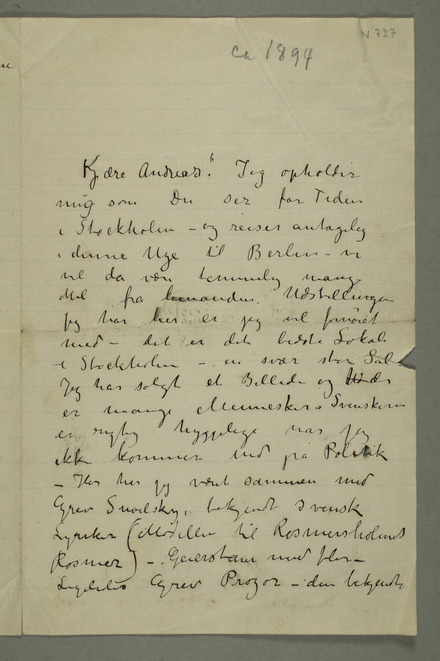 N 727
ca 1894
Kjære Andreas! Jeg opholder
mig som Du ser for Tiden
i Stockholm – og reiser antagelig
i denne Uge til Berlin – vi
vil da være temmelig mange
Mil fra hinanden. Udstillingen
jeg har her er jeg vel fornøiet
med – det er det bedste Lokale
i Stockholm – en svær stor Sal
Jeg har solgt et Billede og der
er mange Mennesker – Svenskerne
er rigtig hyggelige når jeg
ikke kommer ind på Politik
– Her har jeg været sammen med
Grev Snoilsky, bekjendt svensk
Lyriker (Modellen til Rosmersholms
Rosmer) – Geierstam med flere –
Ligeledes Grev Prozor – den bekjendte